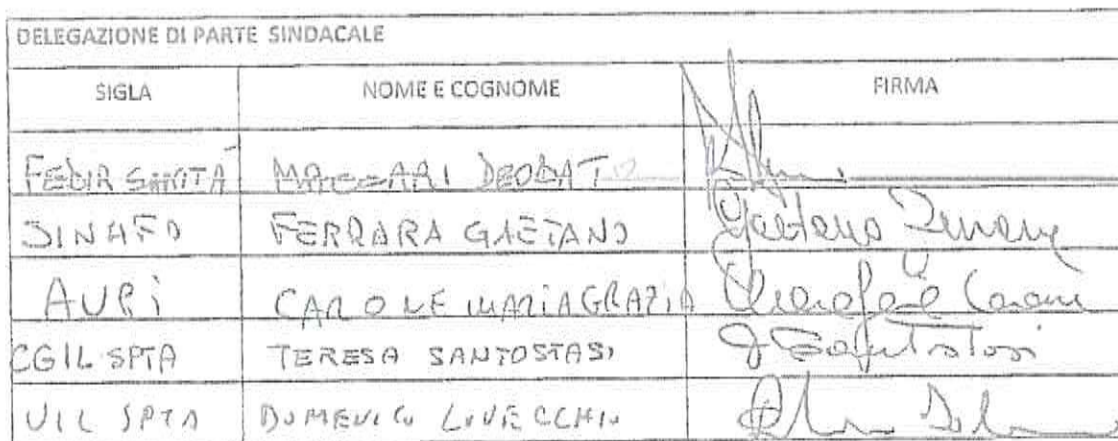 DELEGAZIONE DI PARTE SINDACALE
SIGLA NOME E COGNOME FIRMA
FEDIR SANITÀ DEODATO
SINAFO FERRARA GAETANO Gaetano Ferrara
AUPI CAROLE MARIAGRAZIA
CGIL SPTA TERESA SANTOSTASI T Santostasi
UIL SPTA DOMENICO LOVECCHIO